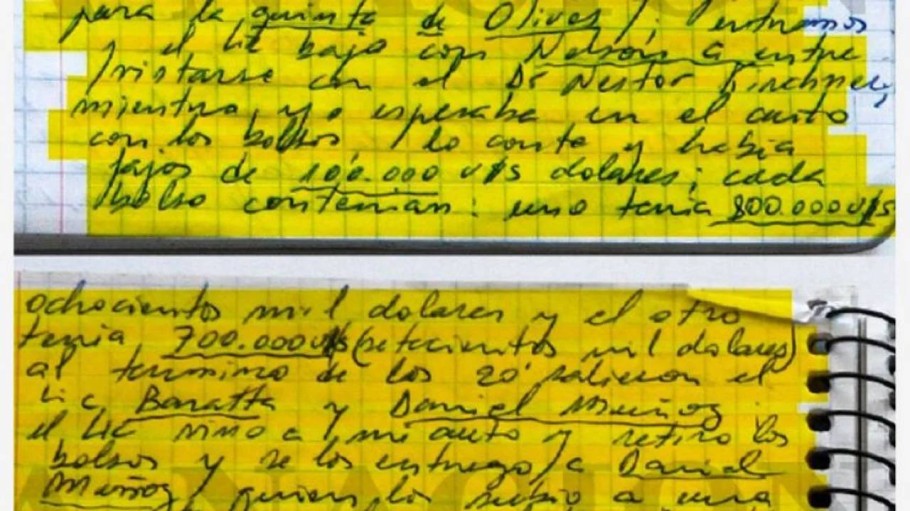 para la quinta de Olivos /. entramos
el Lic bajo con Nelson a entre
/vistarse con el Dr Nestor Kirchner,
mientras yo esperaba en el auto
con los bolsos /lo conte y habia
fajos de 100.000 u$s dolares; cada
bolso contenian: uno tenia 800.000 u$s
ochocientos mil dolares y el otro
tenia 700.000 u$s (setecientos mil dolares)
al termino de los 20' salieron el
Lic Baratta y Daniel Muñoz.
el Lic vino a mi auto y retiro los
bolsos y se los entrego a Daniel
Muñoz quien los subio a una